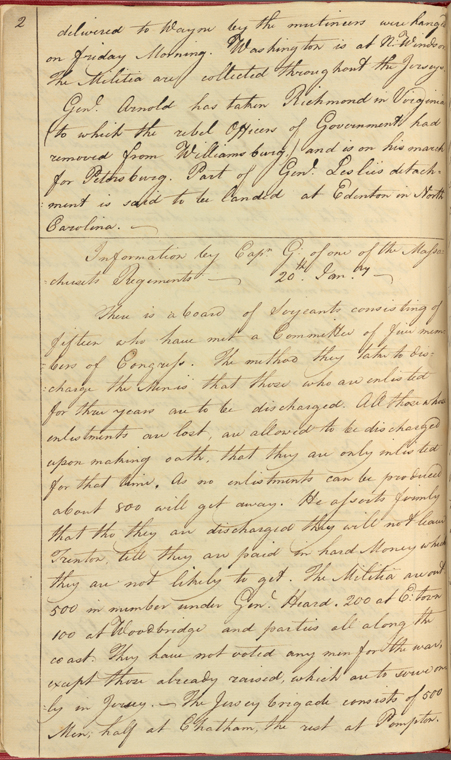 2
delivered to Wayne by the mutineers were hangd
on friday Morning. Washington is at N. Windsor
The Militia are collected throughout the Jerseys
Genl. Arnold has taken Richmond in Virginia
(to which the rebel Officers of Government had
removed from Williamsburg) and is on his march
for Petersburg. Part of Genl. Leslie's detach-
:ment is said to be landed at Edenton in North
Carolina.
Information by Capn G. of one of the Massa
:chusets Regiments — 20th Jany —
There is a board of Serjeants consisting of
fifteen who have met a Committee of five mem
:bers of Congress. The method they take to dis-
:charge the Men is that those who are enlisted
for three years are to be discharged. All those whose
enlistments are lost, are allowed to be discharged
upon making oath, that they are only enlisted
for that time. As no enlistments can be produced
about 800 will get away. He asserts firmly
that tho they are discharged they will not leave
Trenton, till they are paid in hard Money which
they are not likely to get. The Militia are out
500 in number under Genl. Heard, 200 at E. town
100 at Woodbridge and parties all along the
coast. They have not voted any men for the war,
except those already raised, which are to serve on
:ly in Jersey. — The Jersey brigade consists of 500
Men; half at Chatham, the rest at Pompton.